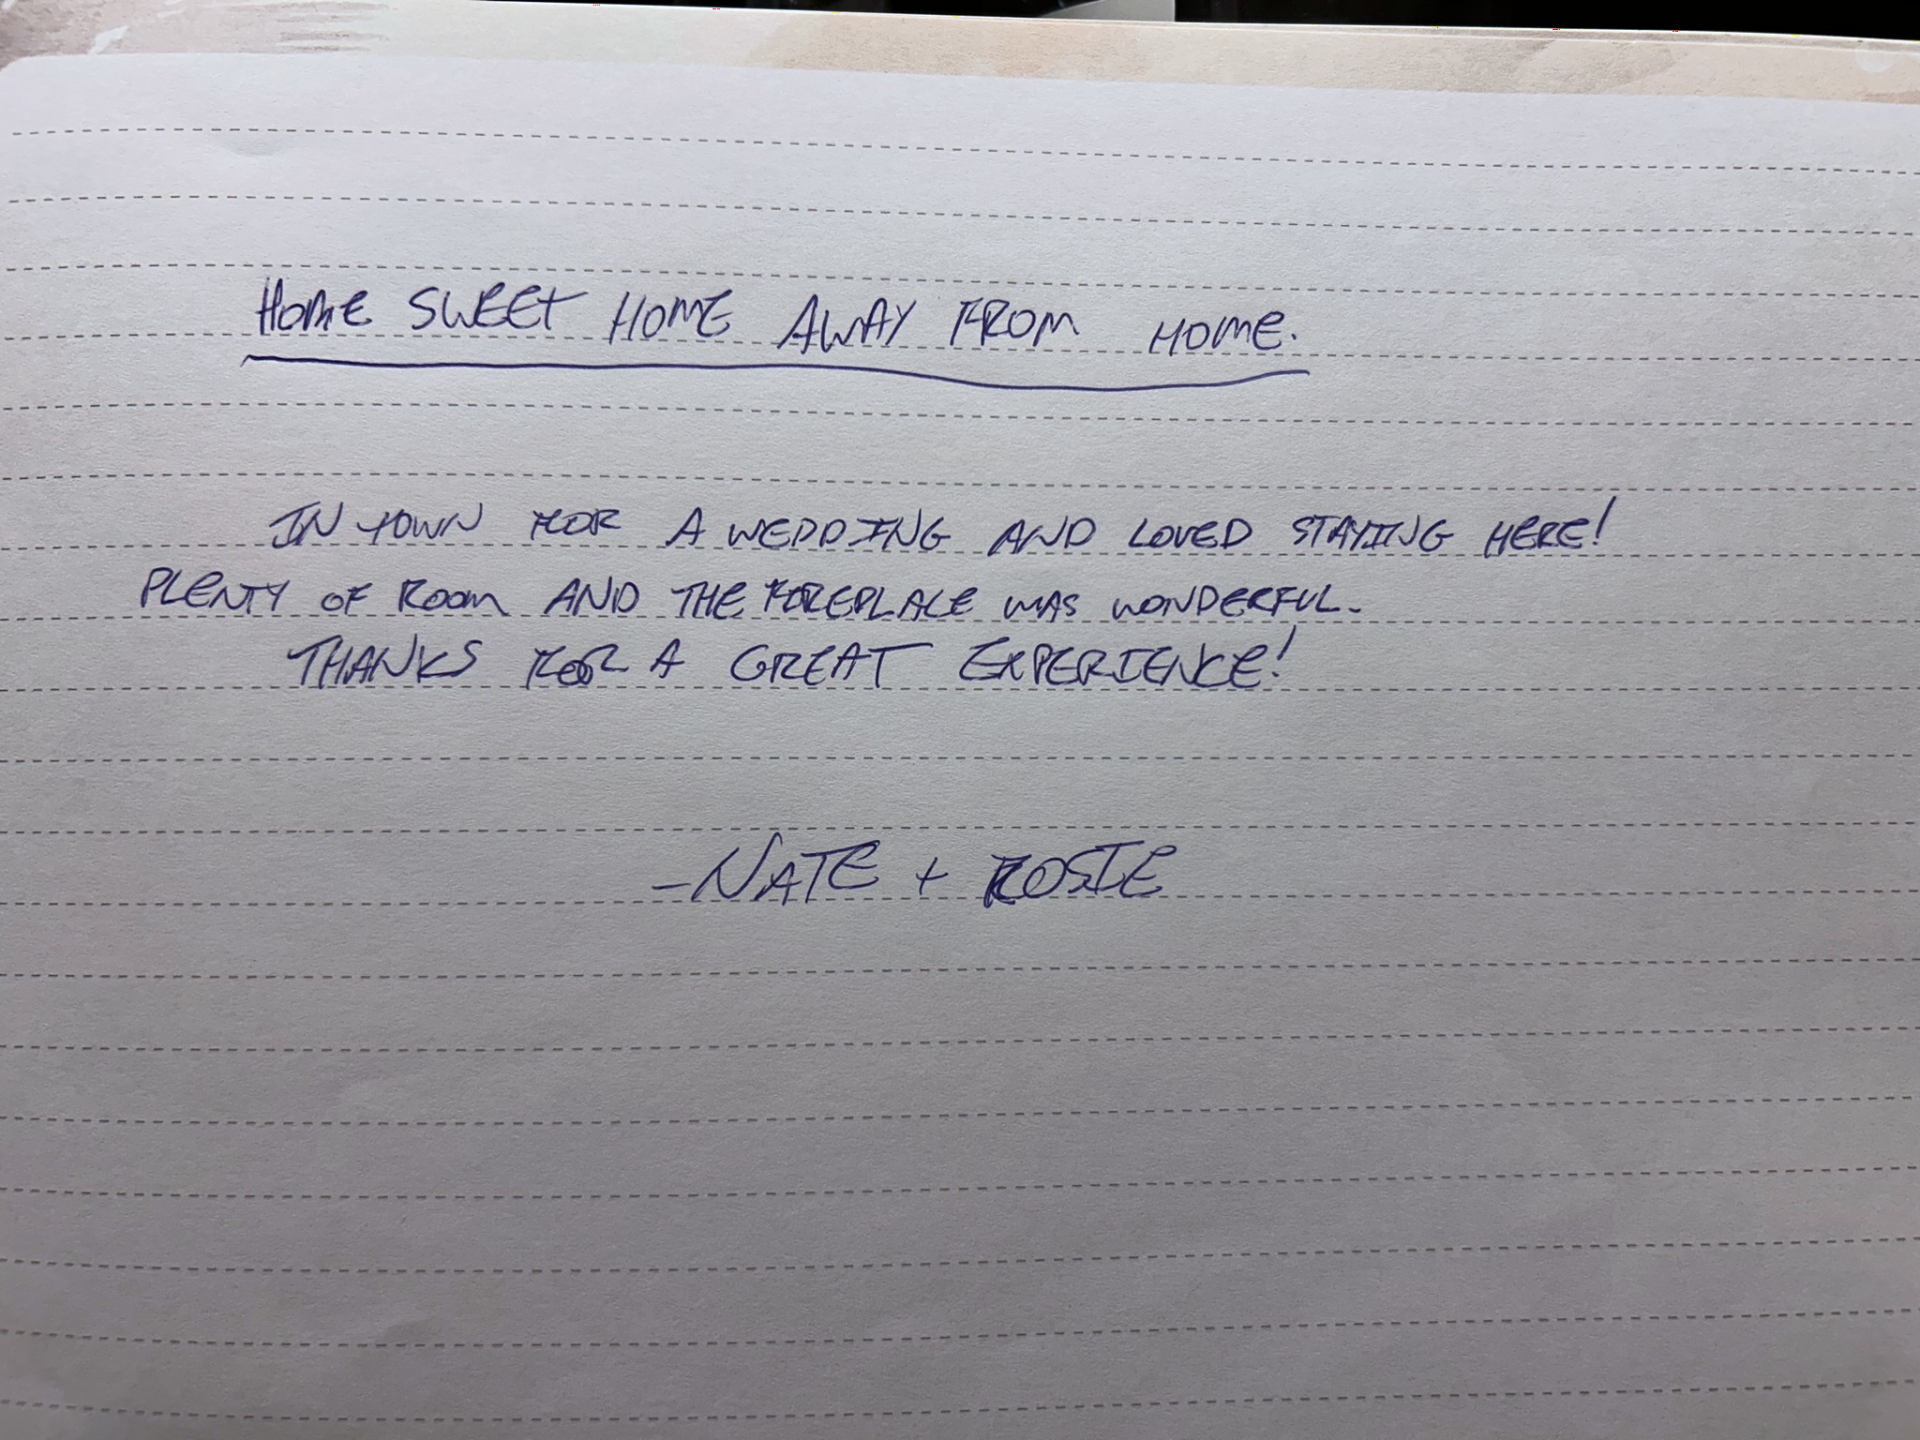 HOME SWEET HOME AWAY FROM HOME.
IN TOWN FOR A WEDDING AND LOVED STAYING HERE!
PLENTY OF ROOM AND THE FIREPLACE WAS WONDERFUL.
THANKS FOR A GREAT EXPERIENCE!
-NATE + ROSIE